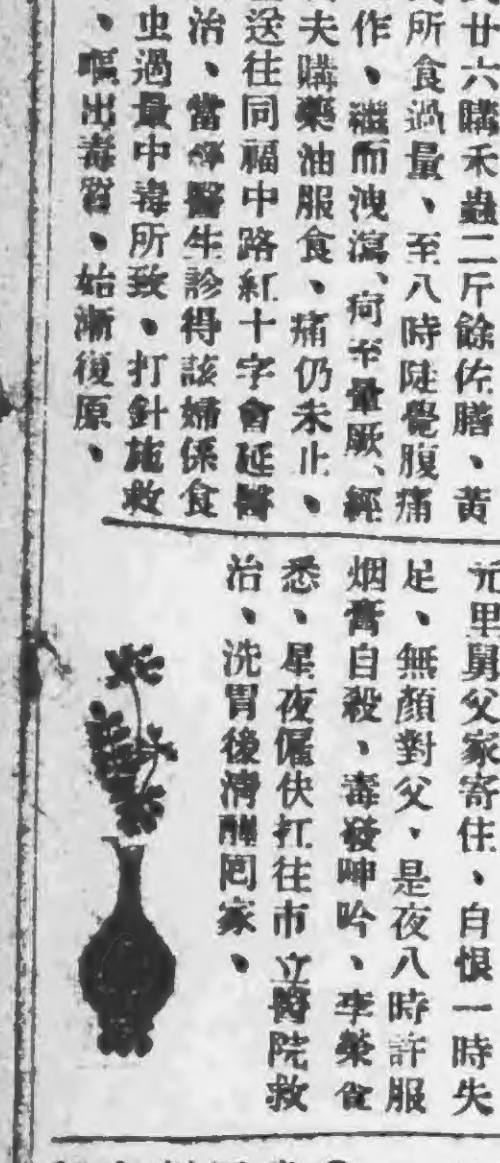 廿六購禾蟲二斤餘佐膳、黃
所食過量、至八時陡覺腹痛
作、繼而洩瀉、何至暈厥、經
夫購藥油服食、痛仍未止、
送往同福中路紅十字會延醫
治、當醫生診得該婦係食
虫過量中毒所致、打針施救
、嘔出毒質、始漸復原、
元里舅父家寄住、自恨一時失
足、無顏對父、是夜八時許服
烟膏自殺、毒發呻吟、李榮食
悉、星夜僱伕扛往市立醫院救
治、洗胃後清醒囘家、